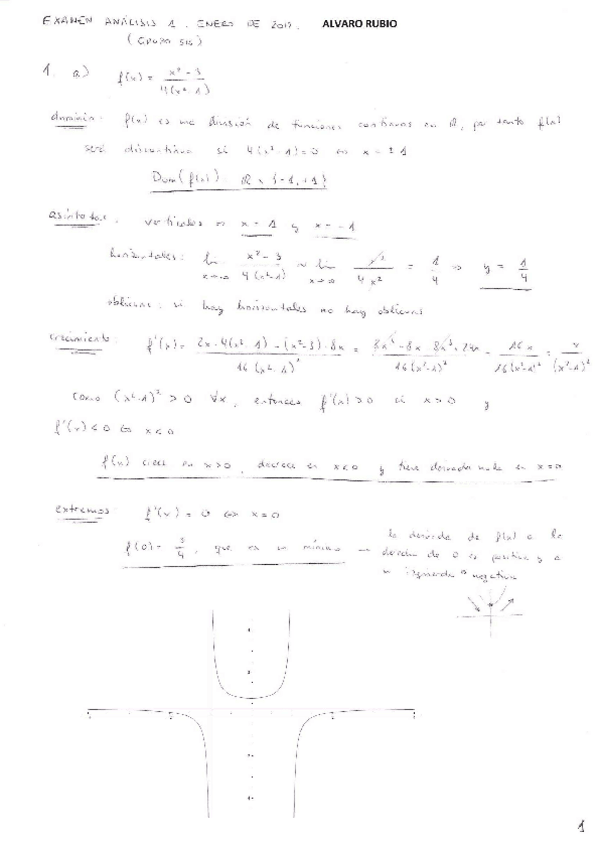 EXAMEN ANÁLISIS 1. ENERO DE 2017. ALVARO RUBIO
(GRUPO 516)
1. a) f(x) = x² - 3 / 4(x² - 1)
dominio: f(x) es una división de funciones continuas en ℝ, por tanto f(x)
será discontinua si 4(x² - 1) = 0 ⇔ x = ± 1
Dom(f(x)) = ℝ \ {-1, +1}
asíntotas: verticales en x = 1 y x = -1
horizontales: lim x→∞ x² - 3 / 4(x² - 1) ~ lim x→∞ x² / 4x² = 1/4 ⇒ y = 1/4
oblicuas: si hay horizontales no hay oblicuas
crecimiento: f'(x) = 2x · 4(x² - 1) - (x² - 3) · 8x / 16(x² - 1)² = 8x³ - 8x - 8x³ + 24x / 16(x² - 1)² = 16x / 16(x² - 1)² = x / (x² - 1)²
como (x² - 1)² > 0 ∀x, entonces f'(x) > 0 si x > 0 y
f'(x) < 0 ⇔ x < 0
f(x) crece en x > 0, decrece en x < 0 y tiene derivada nula en x = 0
extremos: f'(x) = 0 ⇔ x = 0
f(0) = 3/4, que es un mínimo →
la derivada de f(x) a la
derecha de 0 es positiva y a
su izquierda negativa
1